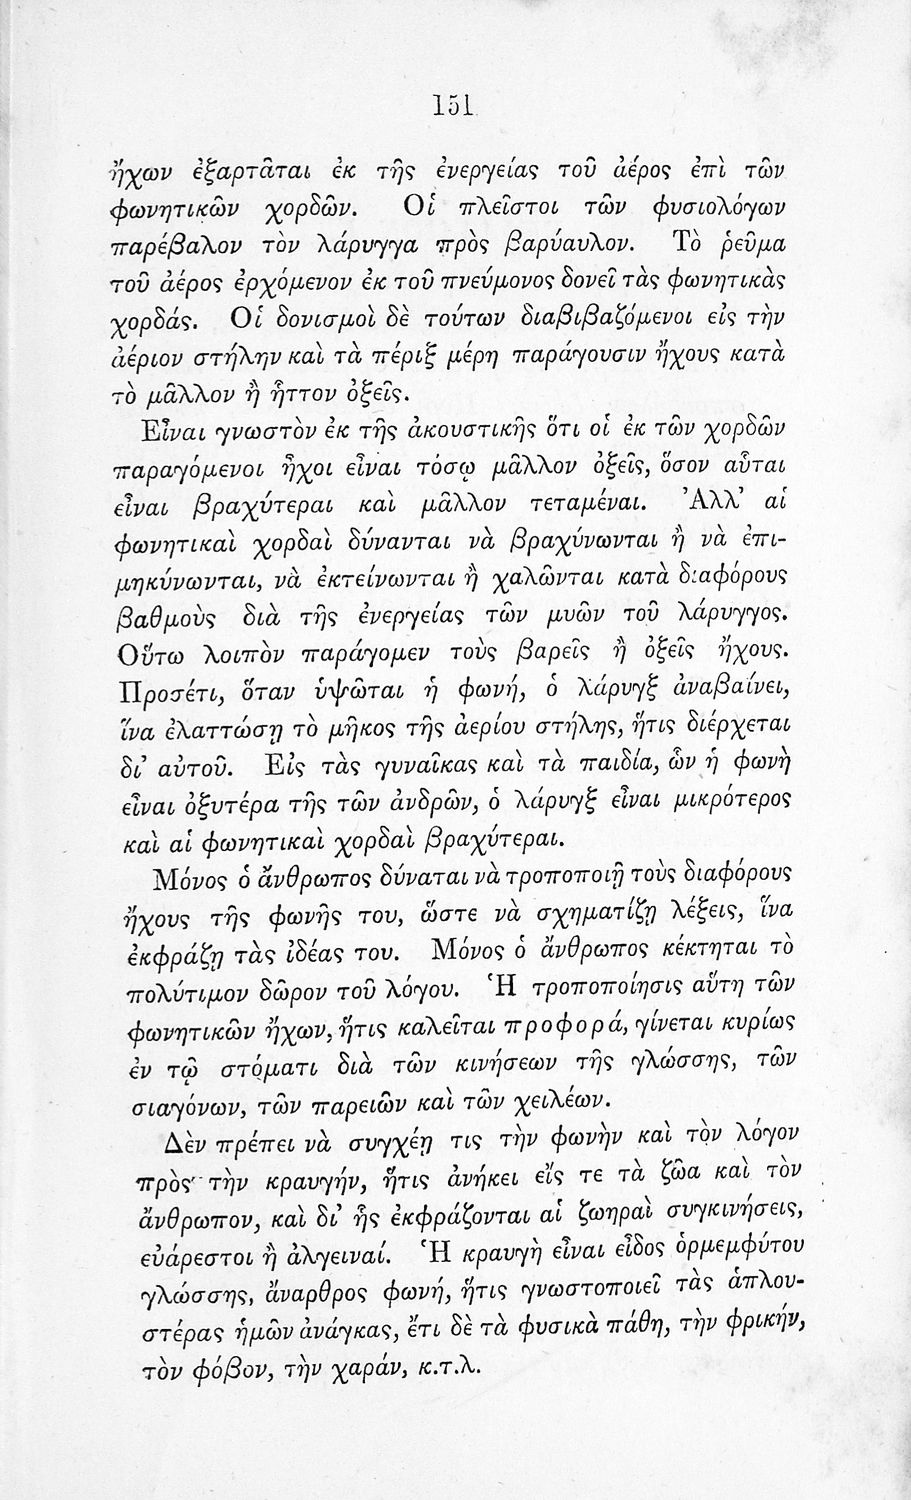 151
ἤχων ἐξαρτᾶται ἐκ τῆς ἐνεργείας τοῦ ἀέρος ἐπὶ τῶν
φωνητικῶν χορδῶν. Οἱ πλεῖστοι τῶν φυσιολόγων
παρέβαλον τὸν λάρυγγα πρὸς βαρύαυλον. Τὸ ῥεῦμα
τοῦ ἀέρος ἐρχόμενον ἐκ τοῦ πνεύμονος δονεῖ τὰς φωνητικὰς
χορδάς. Οἱ δονισμοὶ δὲ τούτων διαβιβαζόμενοι εἰς τὴν
ἀέριον στήλην καὶ τὰ πέριξ μέρη παράγουσιν ἤχους κατὰ
τὸ μᾶλλον ἢ ἧττον ὀξεῖς.
Εἶναι γνωστὸν ἐκ τῆς ἀκουστικῆς ὅτι οἱ ἐκ τῶν χορδῶν
παραγόμενοι ἦχοι εἶναι τόσῳ μᾶλλον ὀξεῖς, ὅσον αὗται
εἶναι βραχύτεραι καὶ μᾶλλον τεταμέναι. Ἀλλ' αἱ
φωνητικαὶ χορδαὶ δύνανται νὰ βραχύνωνται ἢ νὰ ἐπι-
μηκύνωνται, νὰ ἐκτείνωνται ἢ χαλῶνται κατὰ διαφόρους
βαθμοὺς διὰ τῆς ἐνεργείας τῶν μυῶν τοῦ λάρυγγος.
Οὕτω λοιπὸν παράγομεν τοὺς βαρεῖς ἢ ὀξεῖς ἤχους.
Προσέτι, ὅταν ὑψῶται ἡ φωνή, ὁ λάρυγξ ἀναβαίνει,
ἵνα ἐλαττώσῃ τὸ μῆκος τῆς ἀερίου στήλης, ἥτις διέρχεται
δι' αὐτοῦ. Εἰς τὰς γυναῖκας καὶ τὰ παιδία, ὧν ἡ φωνὴ
εἶναι ὀξυτέρα τῆς τῶν ἀνδρῶν, ὁ λάρυγξ εἶναι μικρότερος
καὶ αἱ φωνητικαὶ χορδαὶ βραχύτεραι.
Μόνος ὁ ἄνθρωπος δύναται νὰ τροποποιῇ τοὺς διαφόρους
ἤχους τῆς φωνῆς του, ὥστε νὰ σχηματίζῃ λέξεις, ἵνα
ἐκφράζῃ τὰς ἰδέας του. Μόνος ὁ ἄνθρωπος κέκτηται τὸ
πολύτιμον δῶρον τοῦ λόγου. Ἡ τροποποίησις αὕτη τῶν
φωνητικῶν ἤχων, ἥτις καλεῖται προφορά, γίνεται κυρίως
ἐν τῷ στόματι διὰ τῶν κινήσεων τῆς γλώσσης, τῶν
σιαγόνων, τῶν παρειῶν καὶ τῶν χειλέων.
Δὲν πρέπει νὰ συγχέῃ τις τὴν φωνὴν καὶ τὸν λόγον
πρὸς τὴν κραυγήν, ἥτις ἀνήκει εἴς τε τὰ ζῶα καὶ τὸν
ἄνθρωπον, καὶ δι' ἧς ἐκφράζονται αἱ ζωηραὶ συγκινήσεις,
εὐάρεστοι ἢ ἀλγειναί. Ἡ κραυγὴ εἶναι εἶδος ὁρμεμφύτου
γλώσσης, ἄναρθρος φωνή, ἥτις γνωστοποιεῖ τὰς ἁπλου-
στέρας ἡμῶν ἀνάγκας, ἔτι δὲ τὰ φυσικὰ πάθη, τὴν φρικήν,
τὸν φόβον, τὴν χαράν, κ.τ.λ.